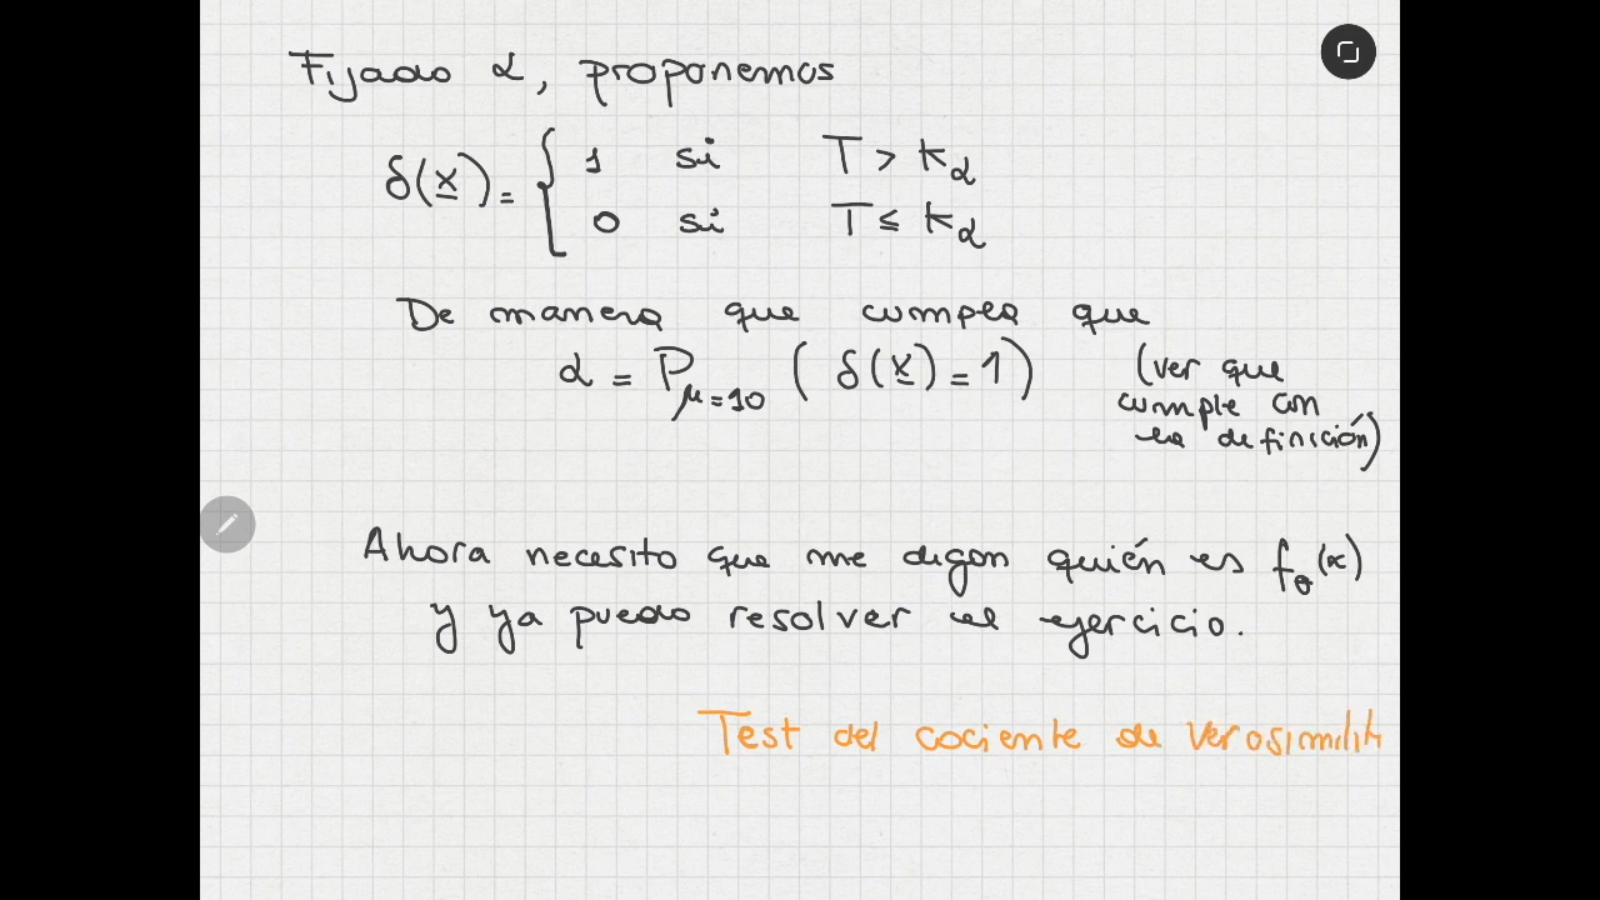 Fijado α, proponemos
δ(x) = { 1 si T > kα
0 si T ≤ kα
De manera que cumpla que
α = Pμ=10 ( δ(x) = 1 )
(ver que
cumple con
la definición)
Ahora necesito que me digan quién es fθ(x)
y ya puedo resolver el ejercicio.
Test del cociente de Verosimilit